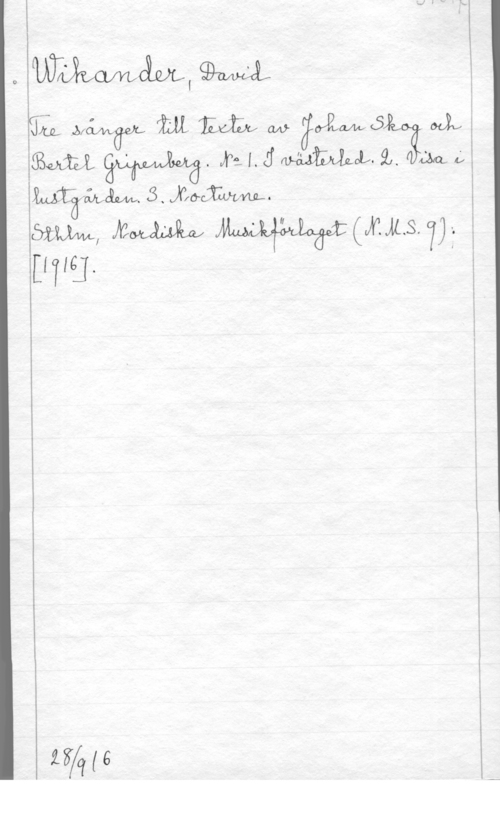 Wikander, David
Tre sånger till texter av Johan Skog och
Bertel Gripenberg. No 1. I västerled. 2. Visa i
lustgården. 3. Nocturne.
Sthlm, Nordiska Musikförlaget (N.M.S. 9);
[1916].
28/9 16